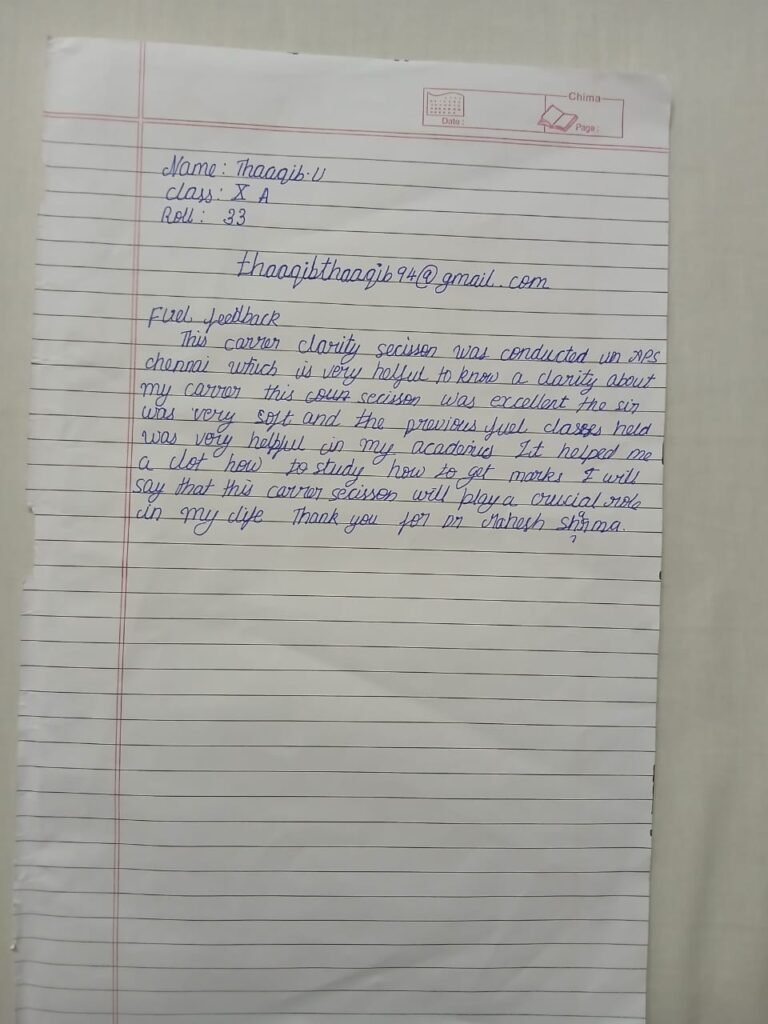 Chima
Date :
Page :
Name : Thaaqib.U
class : X A
Roll : 33
thaaqibthaaqib94@gmail.com
Fuel feedback
This carrer clarity secisson was conducted in APS
chennai which is very helful to know a clarity about
my carrer this secisson was excellent the sir
was very soft and the previous fuel classes held
was very helpful in my academics It helped me
a lot how to study how to get marks I will
say that this carrer secisson will play a crucial role
in my life Thank you for Dr Mahesh sharma.